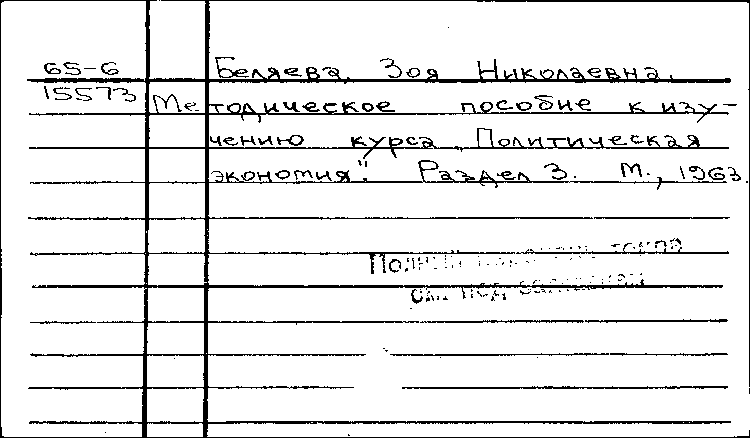 65-6 Беляева, Зоя Николаевна.
15573 Методическое пособие к изу-
чению курса „Политическая
экономия". Раздел 3. М., 1963.
Полный
см. под